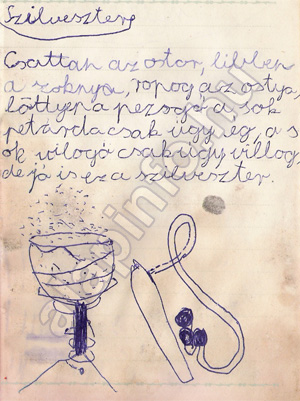 Szilveszter
Csattan az ostor, libben
a szoknya, ropog az ostya,
löttyen a pezsgő a sok
petárda csak úgy ég, a s
ok világó csak úgy villog,
de jó is ez a szilveszter.
alapinfo.hu